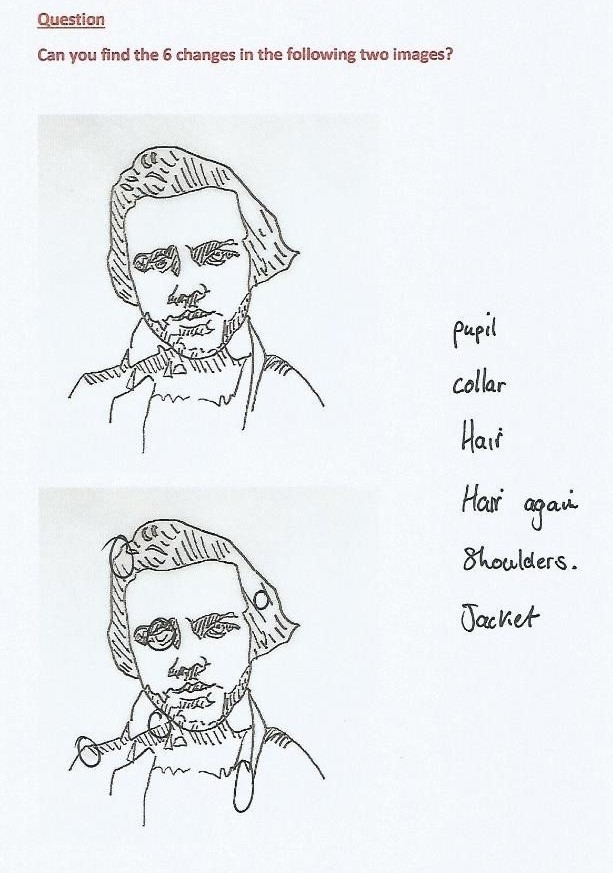 Question
Can you find the 6 changes in the following two images?
pupil
collar
Hair
Hair again
Shoulders.
Jacket